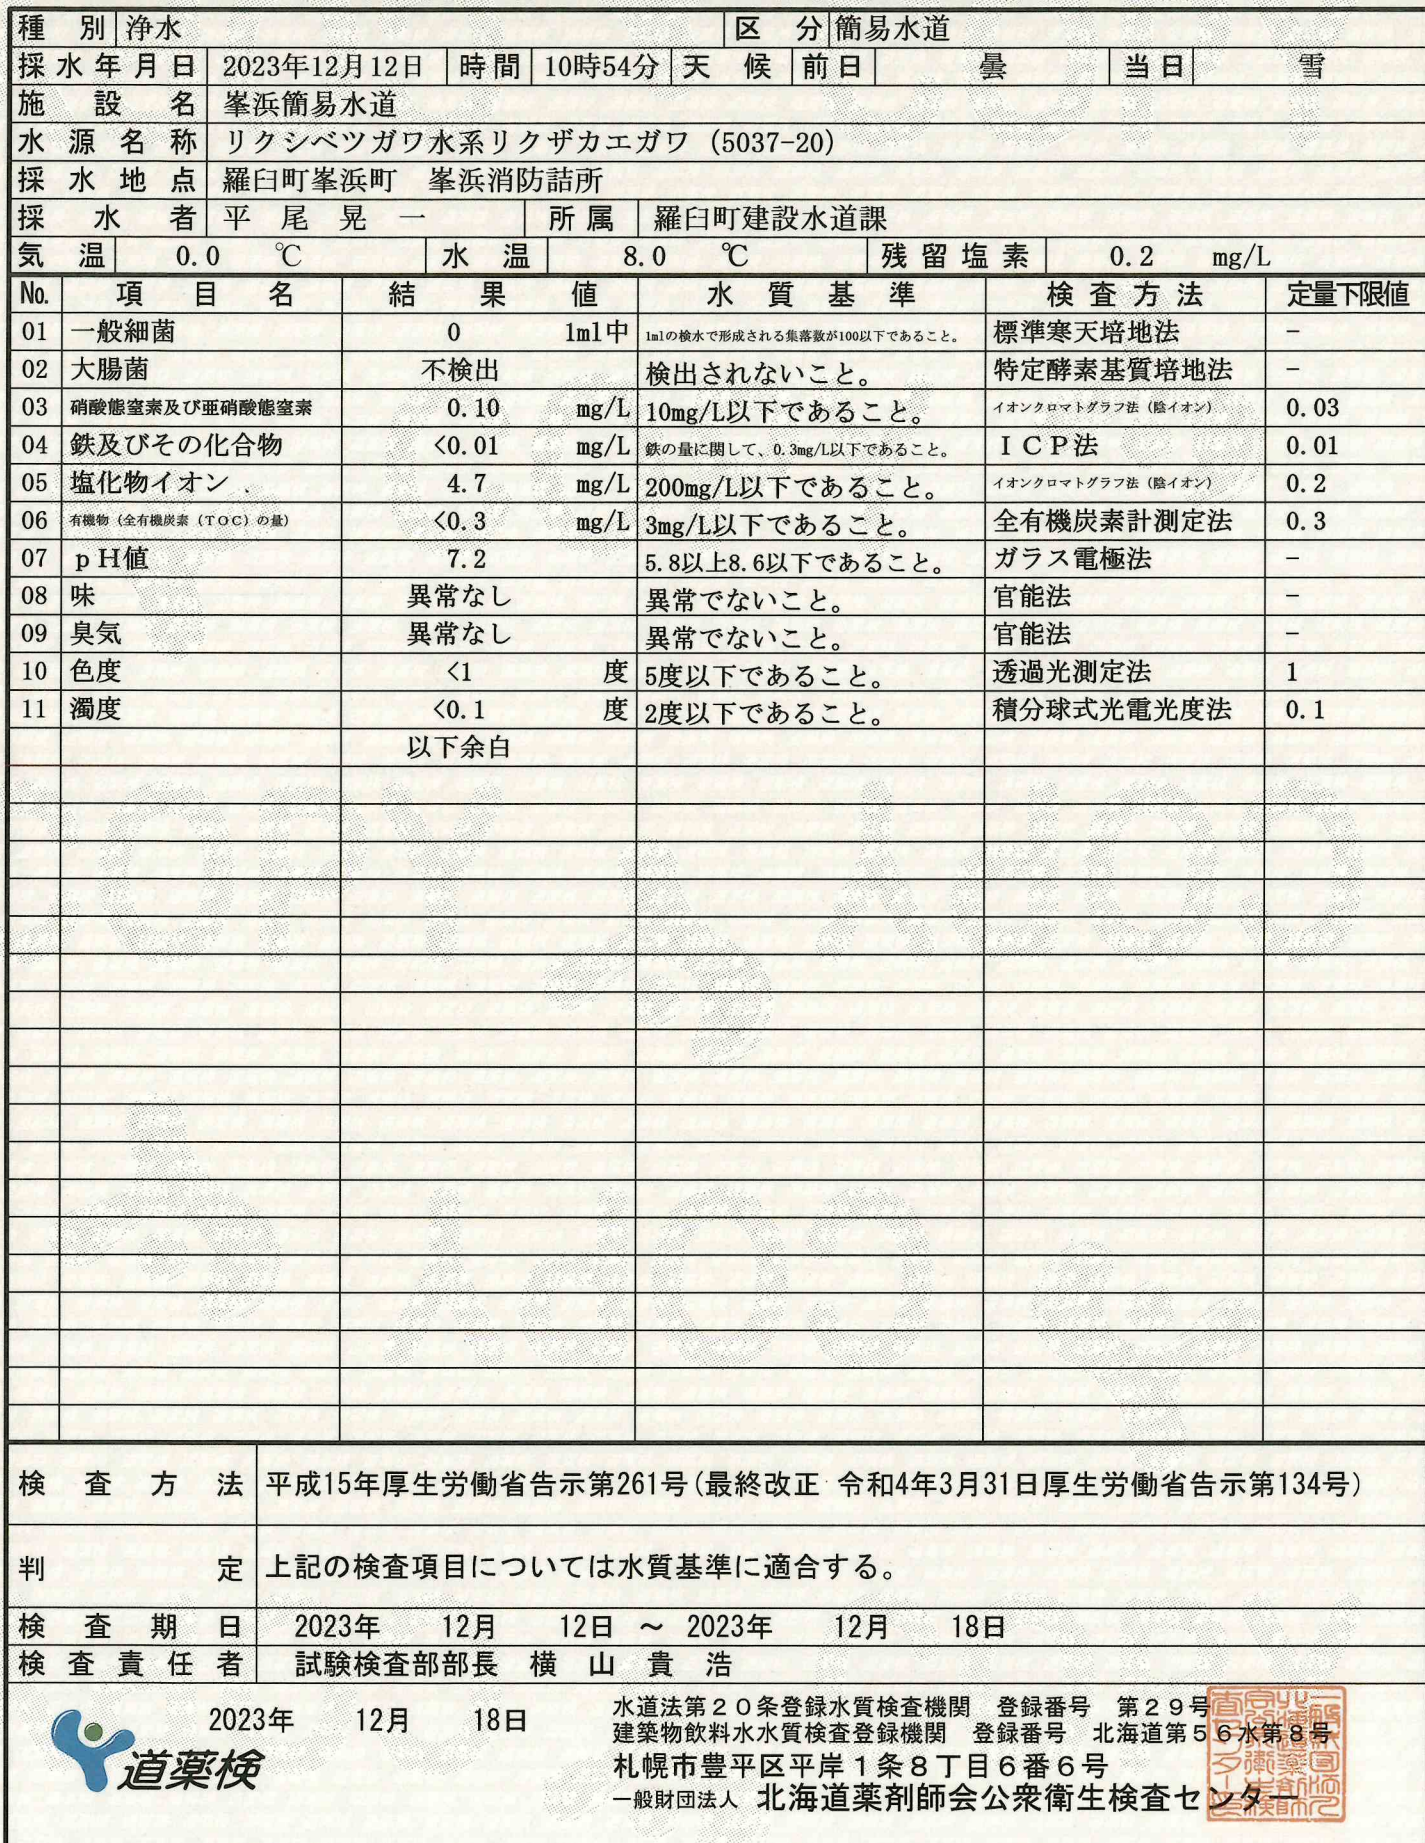 種別 浄水 区分 簡易水道
採水年月日 2023年12月12日 時間 10時54分 天候 前日 曇 当日 雪
施設名 峯浜簡易水道
水源名称 リクシベツガワ水系リクザカエガワ (5037-20)
採水地点 羅臼町峯浜町 峯浜消防詰所
採水者 平尾晃一 所属 羅臼町建設水道課
気温 0.0 ℃ 水温 8.0 ℃ 残留塩素 0.2 mg/L
No. 項目名 結果値 水質基準 検査方法 定量下限値
01 一般細菌 0 1ml中 1mlの検水で形成される集落数が100以下であること。 標準寒天培地法 −
02 大腸菌 不検出 検出されないこと。 特定酵素基質培地法 −
03 硝酸態窒素及び亜硝酸態窒素 0.10 mg/L 10mg/L以下であること。 イオンクロマトグラフ法（陰イオン） 0.03
04 鉄及びその化合物 <0.01 mg/L 鉄の量に関して、0.3mg/L以下であること。 ＩＣＰ法 0.01
05 塩化物イオン 4.7 mg/L 200mg/L以下であること。 イオンクロマトグラフ法（陰イオン） 0.2
06 有機物（全有機炭素（TOC）の量） <0.3 mg/L 3mg/L以下であること。 全有機炭素計測定法 0.3
07 ｐH値 7.2 5.8以上8.6以下であること。 ガラス電極法 −
08 味 異常なし 異常でないこと。 官能法 −
09 臭気 異常なし 異常でないこと。 官能法 −
10 色度 <1 度 5度以下であること。 透過光測定法 1
11 濁度 <0.1 度 2度以下であること。 積分球式光電光度法 0.1
以下余白
COPY COPY
COPY
検査方法 平成15年厚生労働省告示第261号(最終改正 令和4年3月31日厚生労働省告示第134号)
判定 上記の検査項目については水質基準に適合する。
検査期日 2023年 12月 12日 ～ 2023年 12月 18日
検査責任者 試験検査部部長 横山貴浩
2023年 12月 18日
道薬検
水道法第２０条登録水質検査機関 登録番号 第２９号
建築物飲料水水質検査登録機関 登録番号 北海道第５６水第８号
札幌市豊平区平岸１条８丁目６番６号
一般財団法人 北海道薬剤師会公衆衛生検査センター